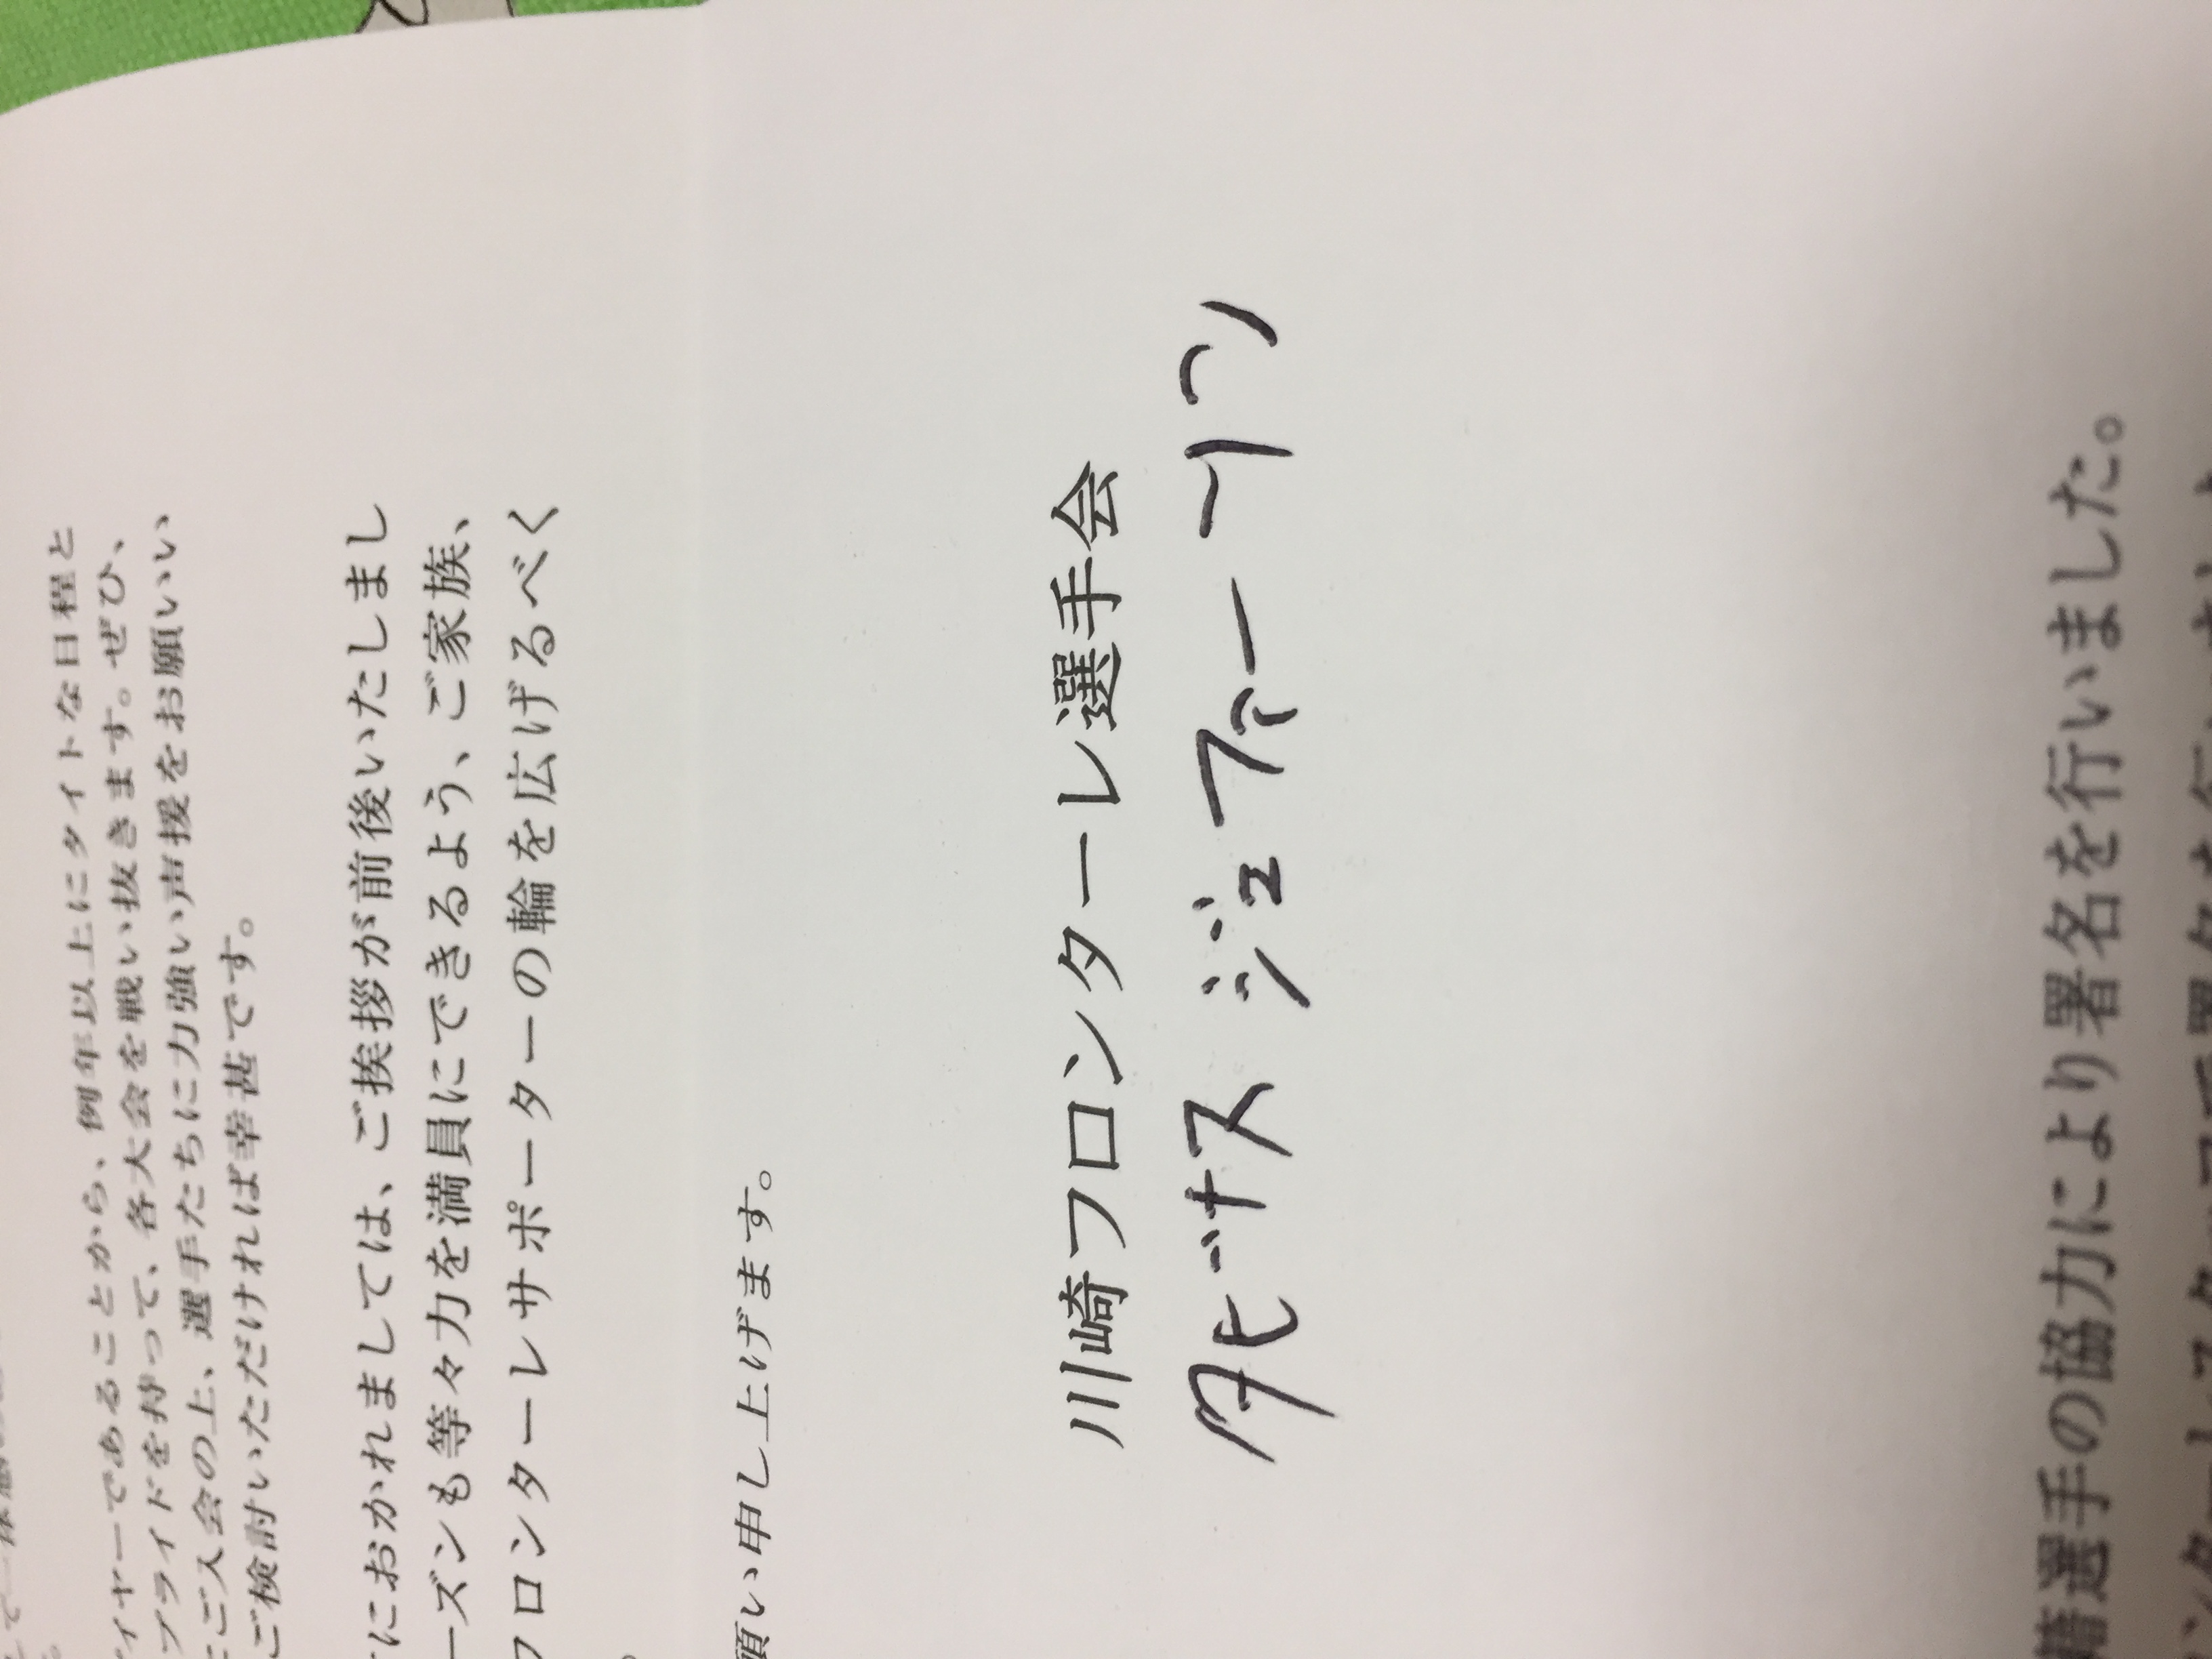 イヤーであることから、例年以上にタイトな日程と
プライドを持って、各大会を戦い抜きます。ぜひ、
ご入会の上、選手たちに力強い声援をお願いい
ご検討いただければ幸甚です。
におかれましては、ご挨拶が前後いたしまし
ーズンも等々力を満員にできるよう、ご家族、
フロンターレサポーターの輪を広げるべく
願い申し上げます。
川崎フロンターレ選手会
タビナス ジェフィーソン
籍選手の協力により署名を行いました。